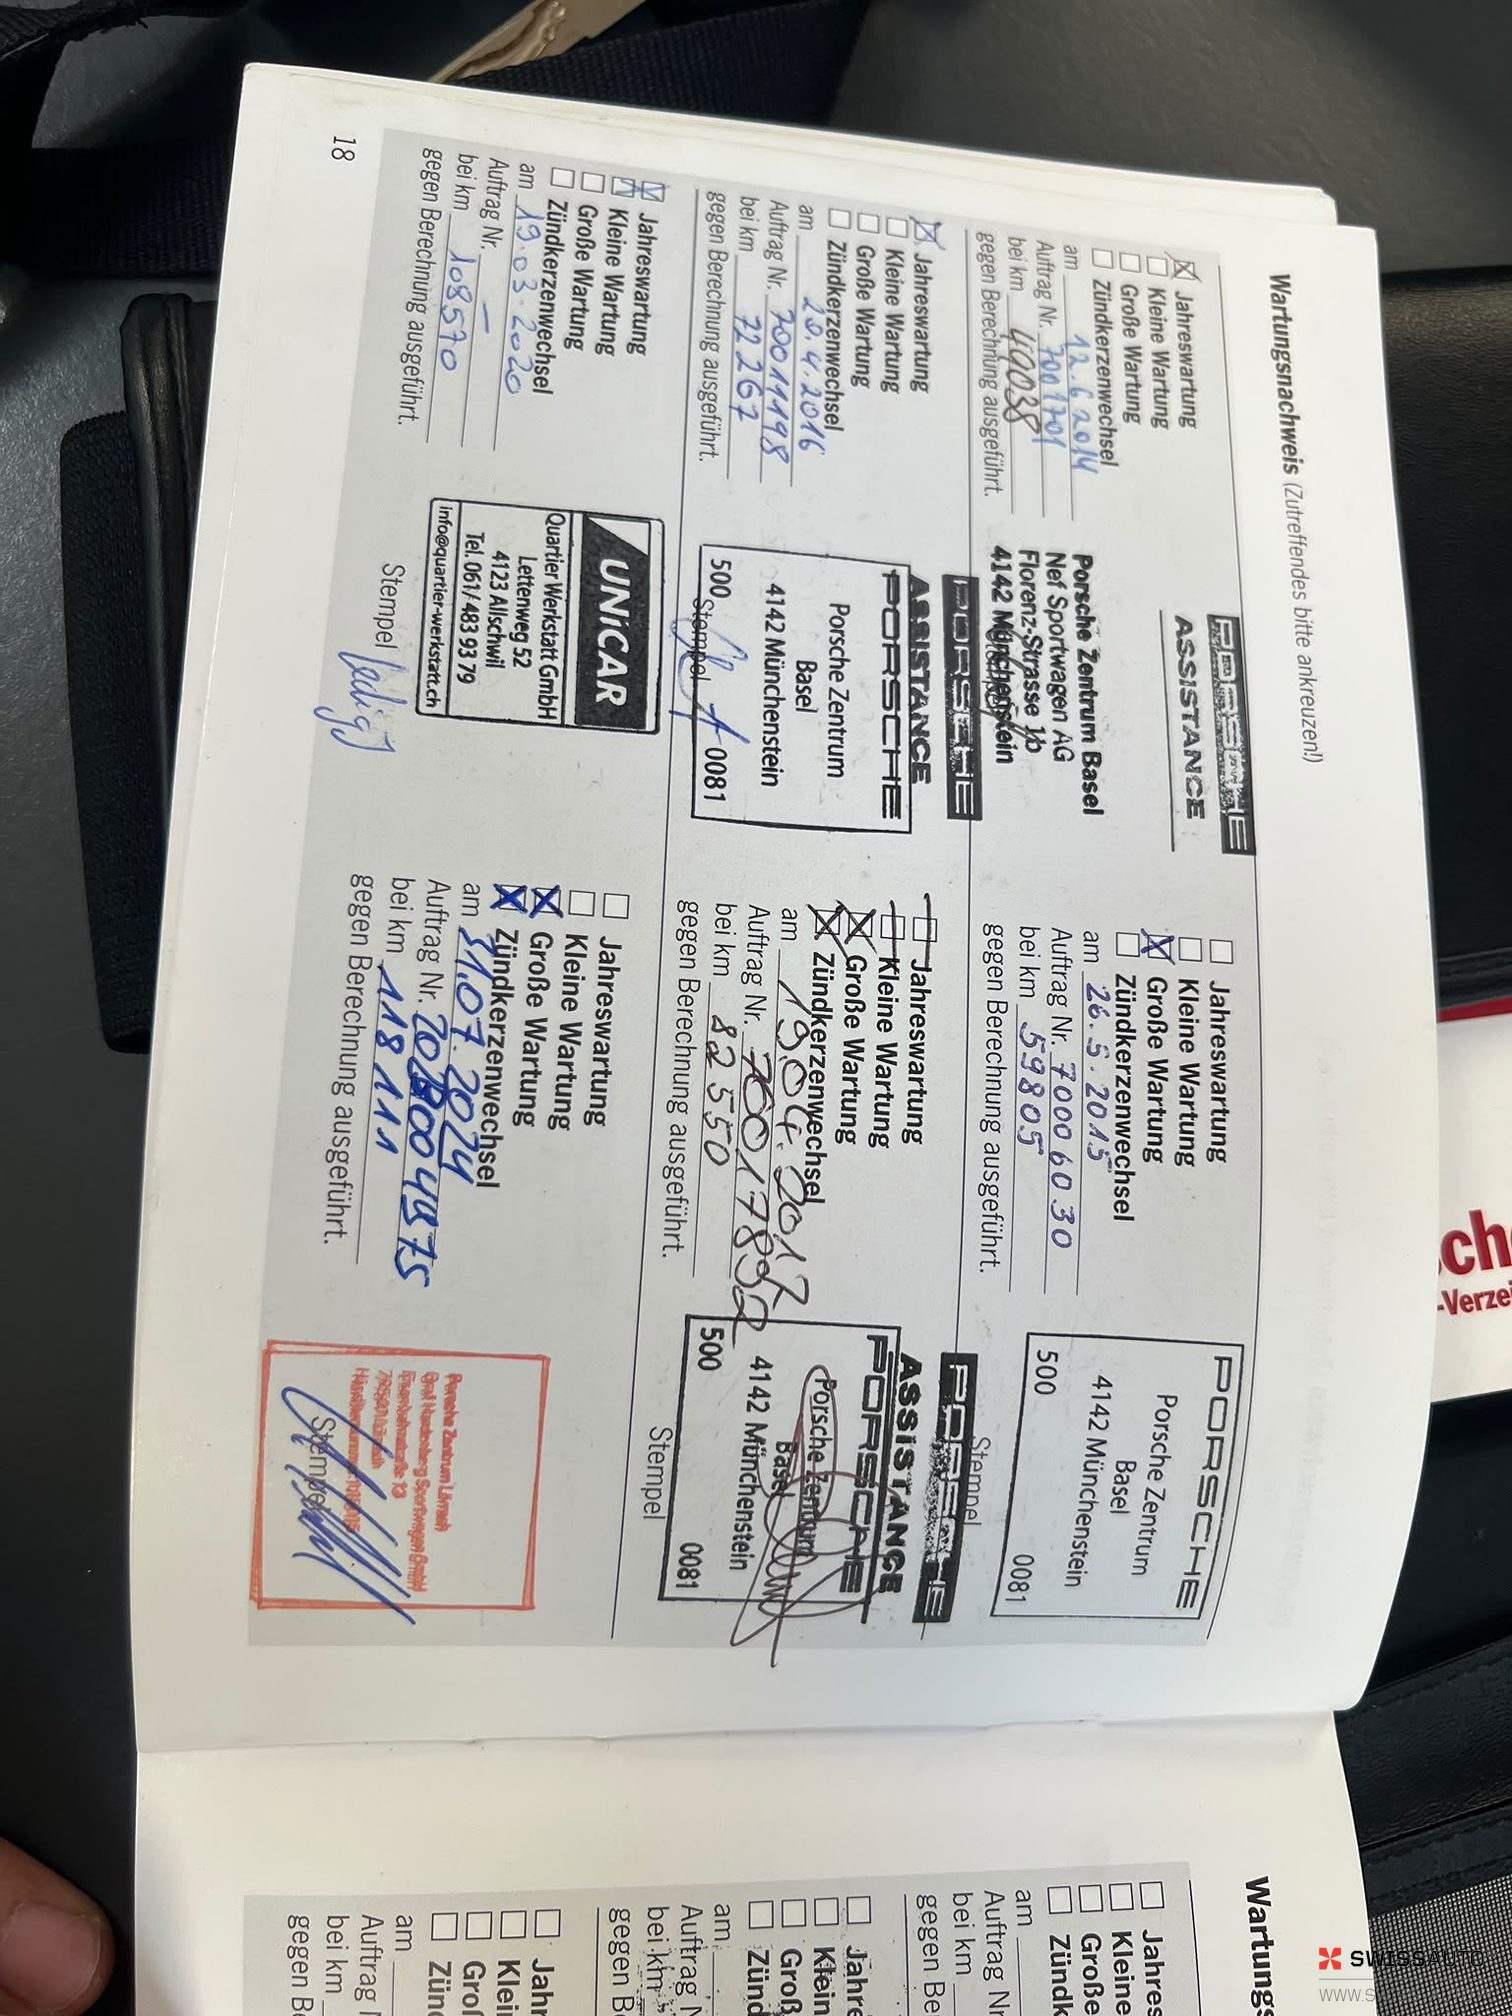 Wartungsnachweis (Zutreffendes bitte ankreuzen!)
Jahreswartung
Kleine Wartung
Große Wartung
Zündkerzenwechsel
am 12.6.2014
Auftrag Nr. 7001701
bei km 49038
gegen Berechnung ausgeführt.
PORSCHE
ASSISTANCE
Porsche Zentrum Basel
Nef Sportwagen AG
Florenz-Strasse 1b
4142 Münchenstein
Jahreswartung
Kleine Wartung
Große Wartung
Zündkerzenwechsel
am 26.5.2015
Auftrag Nr. 70006030
bei km 59805
gegen Berechnung ausgeführt.
PORSCHE
Porsche Zentrum
Basel
4142 Münchenstein
500 0081
Stempel
Jahreswartung
Kleine Wartung
Große Wartung
Zündkerzenwechsel
am 28.4.2016
Auftrag Nr. 70011198
bei km 72267
gegen Berechnung ausgeführt.
PORSCHE
ASSISTANCE
PORSCHE
Porsche Zentrum
Basel
4142 Münchenstein
500 0081
Stempel
Jahreswartung
Kleine Wartung
Große Wartung
Zündkerzenwechsel
am 19.04.2017
Auftrag Nr. 70017892
bei km 82550
gegen Berechnung ausgeführt.
PORSCHE
ASSISTANCE
PORSCHE
Porsche Zentrum
Basel
4142 Münchenstein
500 0081
Stempel
Jahreswartung
Kleine Wartung
Große Wartung
Zündkerzenwechsel
am 19.03.2020
Auftrag Nr. –
bei km 108570
gegen Berechnung ausgeführt.
UNiCAR
Quartier Werkstatt GmbH
Lettenweg 52
4123 Allschwil
Tel. 061/483 93 79
info@quartier-werkstatt.ch
Stempel
Jahreswartung
Kleine Wartung
Große Wartung
Zündkerzenwechsel
am 31.07.2024
Auftrag Nr.
bei km 118111
gegen Berechnung ausgeführt.
Porsche Zentrum Lörrach
Graf Hardenberg Sportwagen GmbH
Stempel
18
Wartungs
Jahre
Kleine
Große
Zündk
am
Auftrag Nr
bei km
gegen Be
Jahre
Klein
Groß
Zünd
am
Auftrag N
bei km
gegen Be
Jahr
Klei
Gro
Zün
am
Auftrag
bei km
gegen B
sch
-Verzei
SWISSAUTO